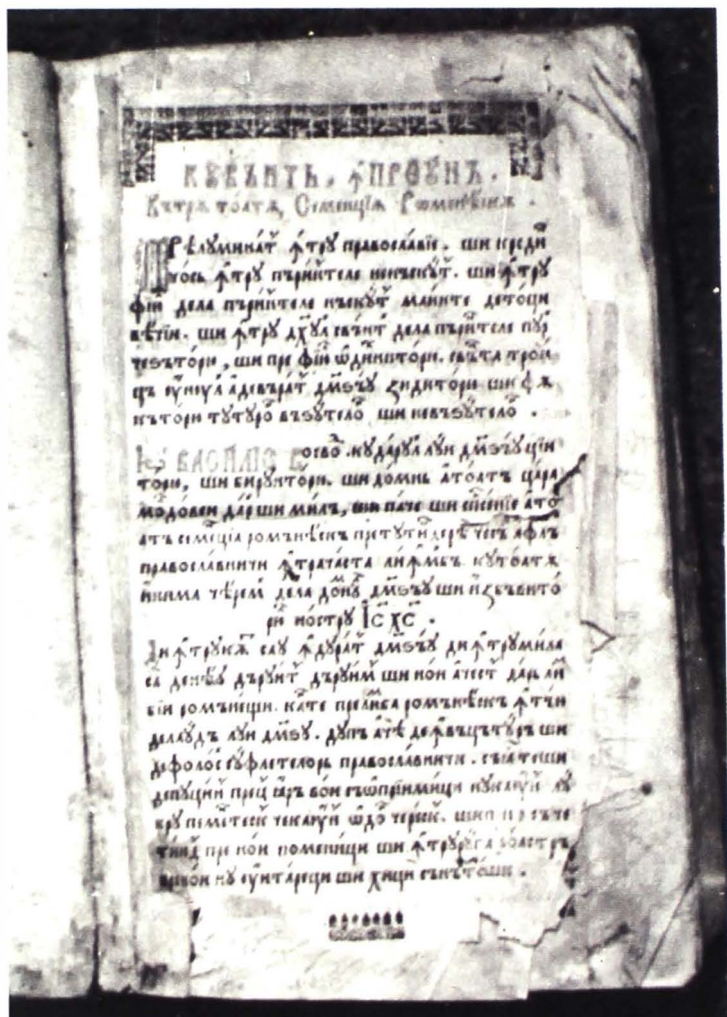 КꙊВѢНТЬ, ꙞПРЕꙊНЪ.
Кътрѫ тоатѫ Семенцїѧ Рѡменѣскѫ.
ПРѢлуминат꙽ ꙟтру православїе. ши креди꙽
ꙟтру пъринтеле ненъскут꙽. ши ꙟтру
фїи꙽ дела пъринтеле нъскут꙽ маинте детоци
вѣчїи. ши ꙟтру дх҃ул свънт꙽ дела пъринтеле пур
чезътори, ши пре фїи꙽ ѡдихнитори. свѫта трои
цъ адевърат꙽ дмн҃зъу зидитори ши фѫ
кътори тутурѡ възутелѡ ши невъзутелѡ.
Іѡ ВАСИЛЇЕ Воевѡд. кударул луи дмн҃зъу цїи
тори, ши бируитори. ши домнь атоатъ цара
молдовеи дар꙽ши милъ, ши паче ши спсенїе ато
атъ семенцїа ромънѣскъ претутиндерѣ ческъ афлъ
православничи ꙟтрачаста лимбъ. кутоатѫ
инима чѣрем꙽ дела домнул дмн҃зъу ши избъвито
рїи꙽ ностру І҆С ХС.
Диꙟтрукѫт сау ꙟдурат꙽ дмн҃зъу диꙟтрумила
са деневу дъруит꙽ дъруим꙽ ши нои ачест꙽ дарь лим
бїи ромънещи. карте прелимба ромънѣскъ ꙟтѫи
делаудъ луи дмн҃зъу. дупъ ачѣ деꙟвъцътуръ ши
дефолос꙽ суфлетелорь православничи. съіатеши
депуцин꙽ прец꙽ іаръ вои съѡпрїимици нукаун꙽ лу
кру пемѫнтеск꙽ чекаун꙽ ѡдор꙽ череск꙽. шипринъче
тинд꙽ пре нои поменици ши ꙟтруруга воастръ
вои ну оуитареци ши хици сънътоши.